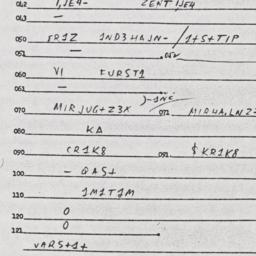 012 1,JE4- ZENTIJE4
013 —
050 FR1Z 1ND3HAJN-/1+S+TIP
051 — 052
060 VI FURST1
061 —
070 MIRJUG+Z3X )-1NC 071 MIRHA,LNZ
080 KA
090 CR1K8 091 $KR1K8
100 – QAS+
110 1M1T1M
120 0
121 0
VARS+1+